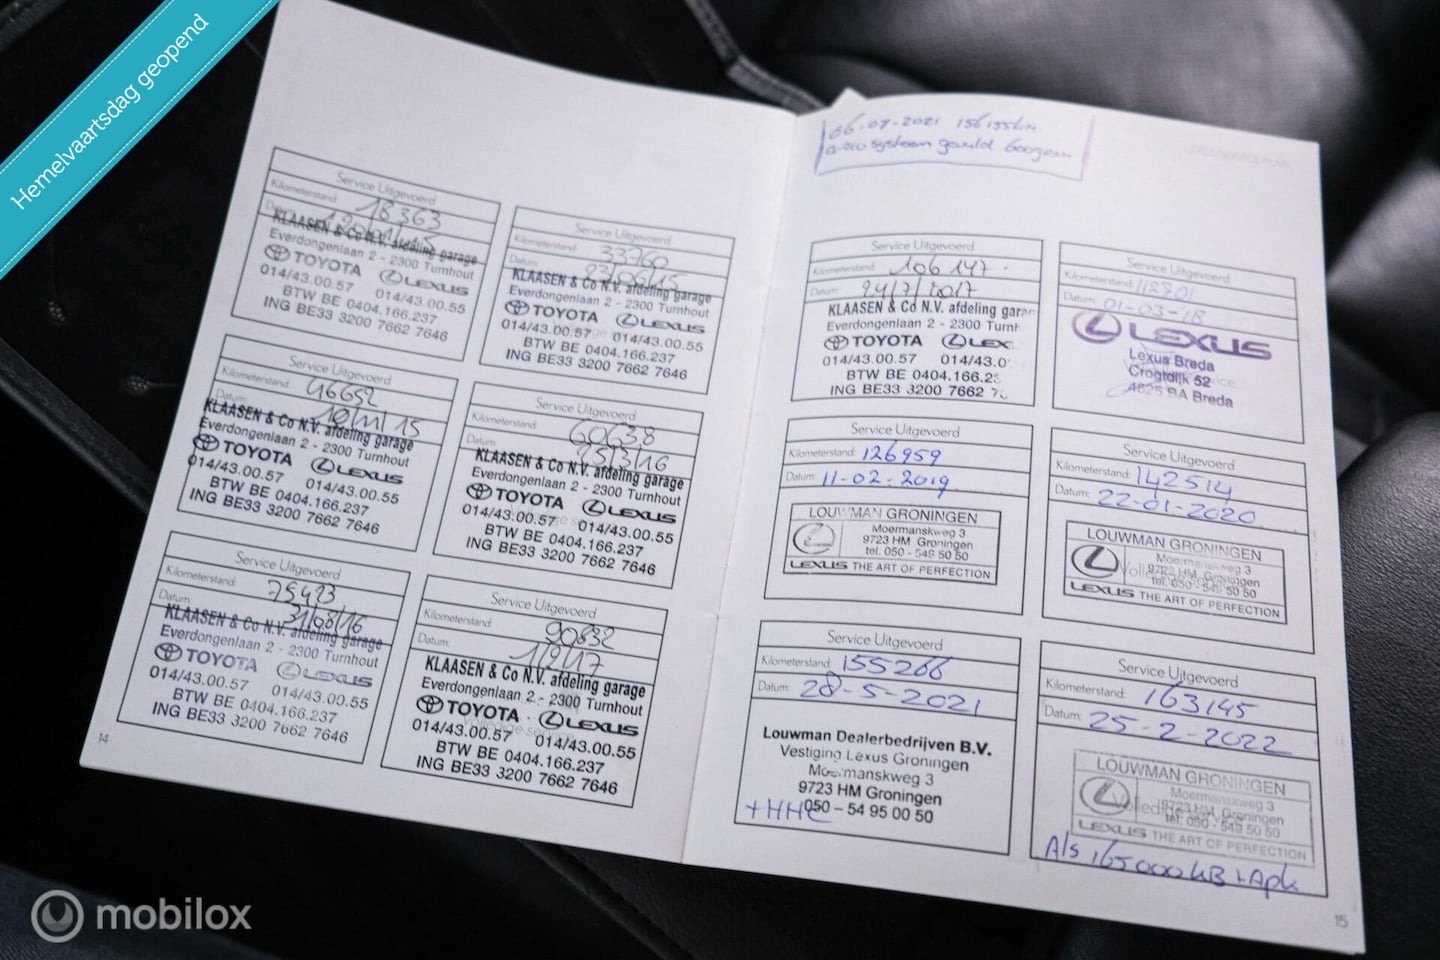 Hemelvaartsdag geopend
Service Uitgevoerd
Kilometerstand: 18363
Datum:
KLAASEN & Co N.V. afdeling garage
Everdongenlaan 2 - 2300 Turnhout
TOYOTA LEXUS
014/43.00.57 014/43.00.55
BTW BE 0404.166.237
ING BE33 3200 7662 7646
Service Uitgevoerd
Kilometerstand: 33760
Datum: 23/06/15
KLAASEN & Co N.V. afdeling garage
Everdongenlaan 2 - 2300 Turnhout
TOYOTA LEXUS
014/43.00.57 014/43.00.55
BTW BE 0404.166.237
ING BE33 3200 7662 7646
Service Uitgevoerd
Kilometerstand: 46652
Datum: 10/11/15
KLAASEN & Co N.V. afdeling garage
Everdongenlaan 2 - 2300 Turnhout
TOYOTA LEXUS
014/43.00.57 014/43.00.55
BTW BE 0404.166.237
ING BE33 3200 7662 7646
Service Uitgevoerd
Kilometerstand: 60638
Datum: 25/3/16
KLAASEN & Co N.V. afdeling garage
Everdongenlaan 2 - 2300 Turnhout
TOYOTA LEXUS
014/43.00.57 014/43.00.55
BTW BE 0404.166.237
ING BE33 3200 7662 7646
Service Uitgevoerd
Kilometerstand: 75423
Datum: 31/08/16
KLAASEN & Co N.V. afdeling garage
Everdongenlaan 2 - 2300 Turnhout
TOYOTA LEXUS
014/43.00.57 014/43.00.55
BTW BE 0404.166.237
ING BE33 3200 7662 7646
Service Uitgevoerd
Kilometerstand: 90632
Datum: 1/2/17
KLAASEN & Co N.V. afdeling garage
Everdongenlaan 2 - 2300 Turnhout
TOYOTA LEXUS
014/43.00.57 014/43.00.55
BTW BE 0404.166.237
ING BE33 3200 7662 7646
14
06-07-2021 156155km
airco systeem gevuld
LEXUS SERVICE PLAN
Service Uitgevoerd
Kilometerstand: 106147
Datum: 24/7/2017
KLAASEN & Co N.V. afdeling garag
Everdongenlaan 2 - 2300 Turnh
TOYOTA LEX
014/43.00.57 014/43.0
BTW BE 0404.166.23
ING BE33 3200 7662 7
Service Uitgevoerd
Kilometerstand:
Datum: 01-03-'18
LEXUS
Lexus Breda
Crogtdijk 52
4825 BA Breda
Service Uitgevoerd
Kilometerstand: 126959
Datum: 11-02-2019
LOUWMAN GRONINGEN
Moermanskweg 3
9723 HM Groningen
tel. 050 - 549 50 50
LEXUS THE ART OF PERFECTION
Service Uitgevoerd
Kilometerstand: 142514
Datum: 22-01-2020
LOUWMAN GRONINGEN
Moermanskweg 3
9723 HM Groningen
tel. 050 - 549 50 50
LEXUS THE ART OF PERFECTION
Service Uitgevoerd
Kilometerstand: 155266
Datum: 28-5-2021
Louwman Dealerbedrijven B.V.
Vestiging Lexus Groningen
Moermanskweg 3
9723 HM Groningen
050 - 54 95 00 50
+HHC
Service Uitgevoerd
Kilometerstand: 163145
Datum: 25-2-2022
LOUWMAN GRONINGEN
Moermanskweg 3
9723 HM Groningen
tel. 050 - 549 50 50
LEXUS THE ART OF PERFECTION
Als 165000 KB + Apk
15
mobilox